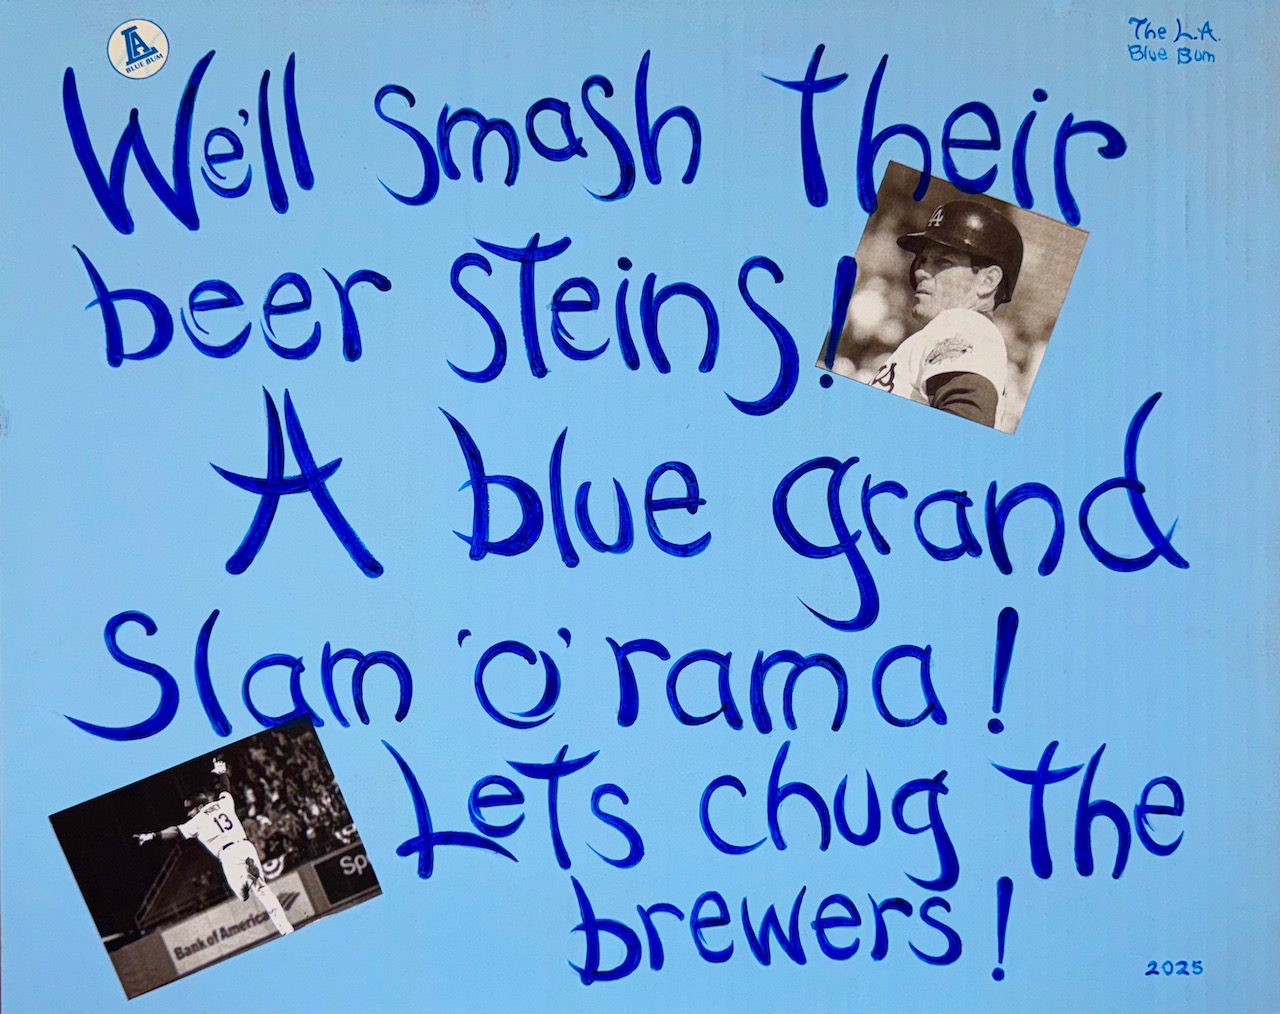 LA
BLUE BUM
The L.A.
Blue Bum
We'll smash Their
beer steins!
A blue grand
Slam 'o' rama!
Lets chug the
brewers!
A
13
Bank of America
Sp
2025